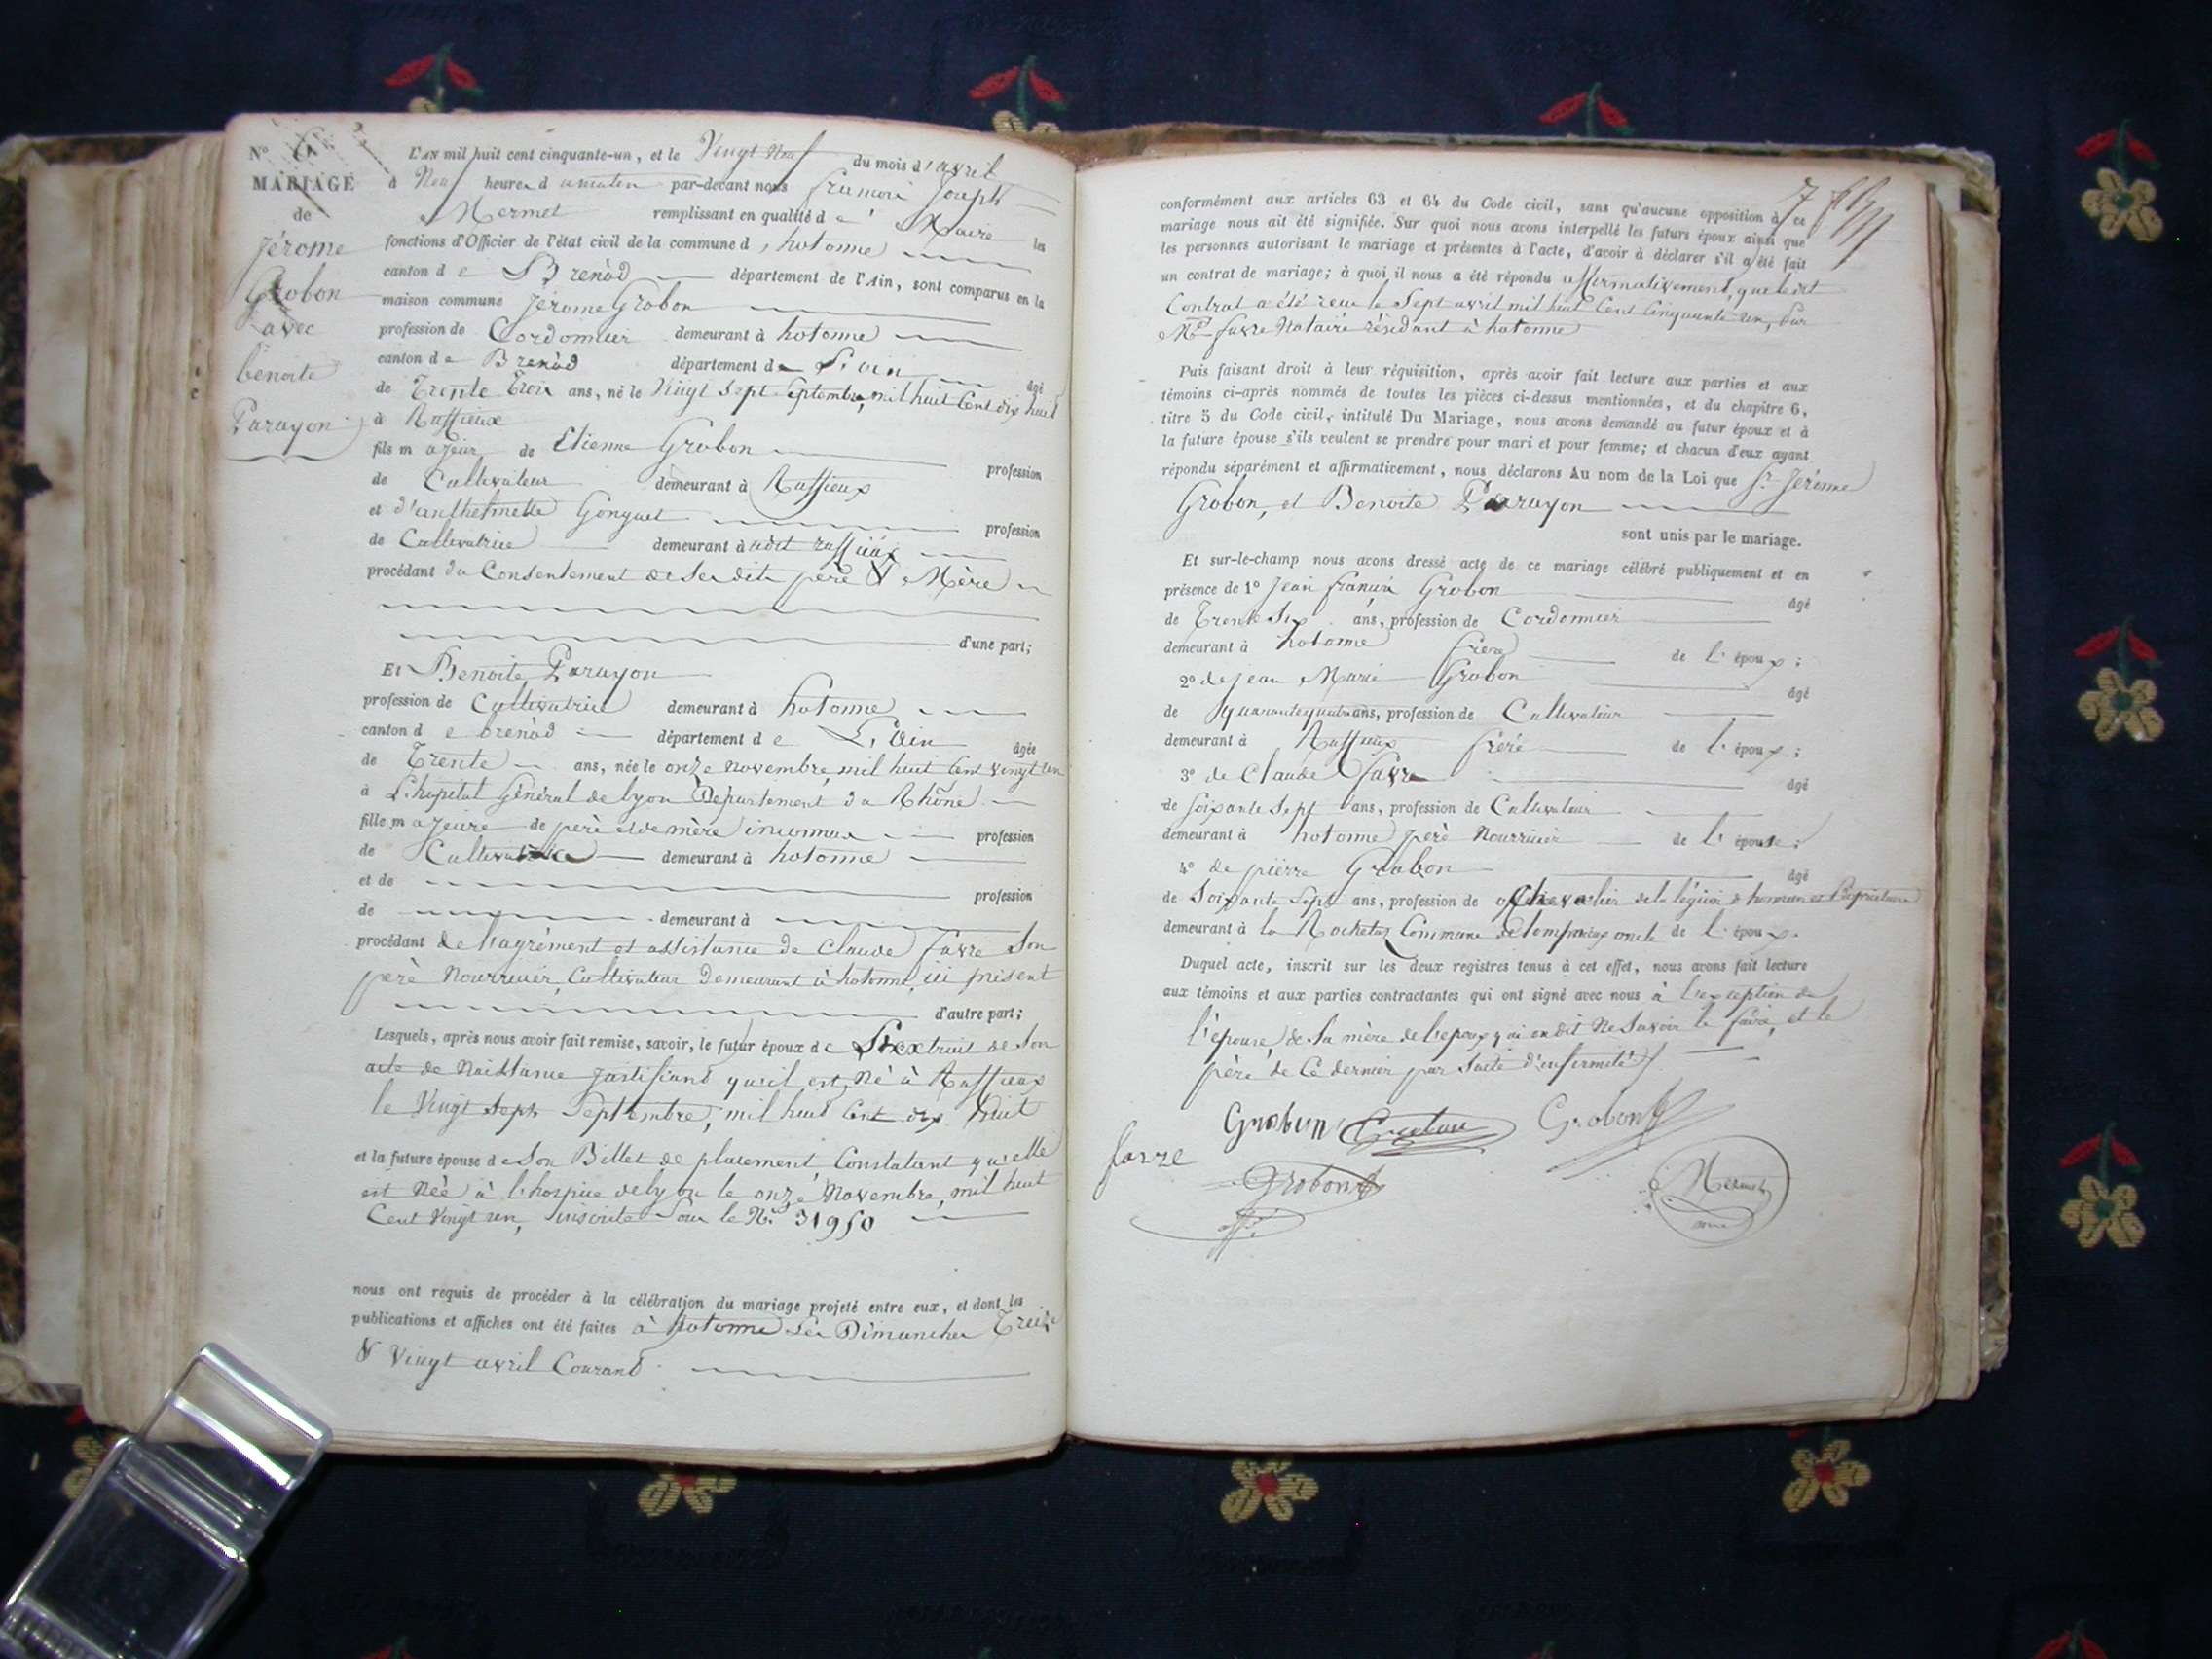 N° 6
MARIAGE
de
Jérome
Grobon
avec
benoite
Paruyon
L'AN mil huit cent cinquante-un, et le Vingt Neuf du mois d'avril
à Neuf heures du matin par-devant nous francois Joseph
Mermet remplissant en qualité de Maire les
fonctions d'Officier de l'état civil de la commune d'hotonne
canton de Brenod département de l'Ain, sont comparus en la
maison commune Jérome Grobon
profession de Cordonnier demeurant à hotonne
canton de Brenod département de L'ain âgé
de Trente Trois ans, né le Vingt Sept Septembre, mil huit Cent dix huit
à Ruffieux
fils majeur de Etienne Grobon profession
de Cultivateur demeurant à Ruffieux
et d'anthelmette Gonguet profession
de Cultivatrice demeurant à udit ruffieux
procédant du Consentement de Ses dits père & Mère
d'une part;
Et Benoite Paruyon
profession de Cultivatrice demeurant à hotonne
canton de brenod département de L'Ain âgée
de Trente ans, née le onze novembre, mil huit Cent vingt un
à L'hopital Général de lyon Département du Rhône
fille majeure de père et de mère inconnus profession
de Cultivatrice demeurant à hotonne
et de profession
de demeurant à
procédant de l'agrément et assistance de Claude favre Son
père Nourricier, Cultivateur Demeurant à hotonne, ici présent
d'autre part;
Lesquels, après nous avoir fait remise, savoir, le futur époux de L'extrait de Son
acte de Naissance justifiant qu'il est Né à Ruffieux
le Vingt Sept Septembre, mil huit Cent dix huit
et la future épouse de Son Billet de placement Constatant qu'elle
est Née à l'hospice de lyon le onze Novembre, mil huit
Cent Vingt un, inscrite Sous le N° 31950
nous ont requis de procéder à la célébration du mariage projeté entre eux, et dont les
publications et affiches ont été faites à hotonne Les Dimanches Treize
& Vingt avril Courant
7
conformément aux articles 63 et 64 du Code civil, sans qu'aucune opposition à ce
mariage nous ait été signifiée. Sur quoi nous avons interpellé les futurs époux ainsi que
les personnes autorisant le mariage et présentes à l'acte, d'avoir à déclarer s'il a été fait
un contrat de mariage; à quoi il nous a été répondu affirmativement, que ledit
Contrat a été reçu le Sept avril mil huit Cent Cinquante un, Par
Me favre Notaire résidant à hotonne
Puis faisant droit à leur réquisition, après avoir fait lecture aux parties et aux
témoins ci-après nommés de toutes les pièces ci-dessus mentionnées, et du chapitre 6,
titre 5 du Code civil, intitulé Du Mariage, nous avons demandé au futur époux et à
la future épouse s'ils veulent se prendre pour mari et pour femme; et chacun d'eux ayant
répondu séparément et affirmativement, nous déclarons Au nom de la Loi que Sr Jérome
Grobon, et Benoite Paruyon
sont unis par le mariage.
Et sur-le-champ nous avons dressé acte de ce mariage célébré publiquement et en
présence de 1° Jean francois Grobon âgé
de Trente Six ans, profession de Cordonnier
demeurant à hotonne frère de l'époux;
2° de jean Marie Grobon âgé
de quarante quatre ans, profession de Cultivateur
demeurant à Ruffieux frère de l'époux;
3° de Claude favre âgé
de Soixante Sept ans, profession de Cultivateur
demeurant à hotonne père Nourricier de l'épouse;
4° de pierre Grobon âgé
de Soixante Sept ans, profession de Chevalier de la légion d'honneur et Propriétaire
demeurant à la Rochette Commune de lompnieux oncle de l'époux.
Duquel acte, inscrit sur les deux registres tenus à cet effet, nous avons fait lecture
aux témoins et aux parties contractantes qui ont signé avec nous à l'exception de
l'épouse, de la mère de l'epoux qui ont dit Ne Savoir le faire, et le
père de Ce dernier par Suite d'infirmité.
Grobon Grobon Grobon
favre
Grobon
Mermet
maire